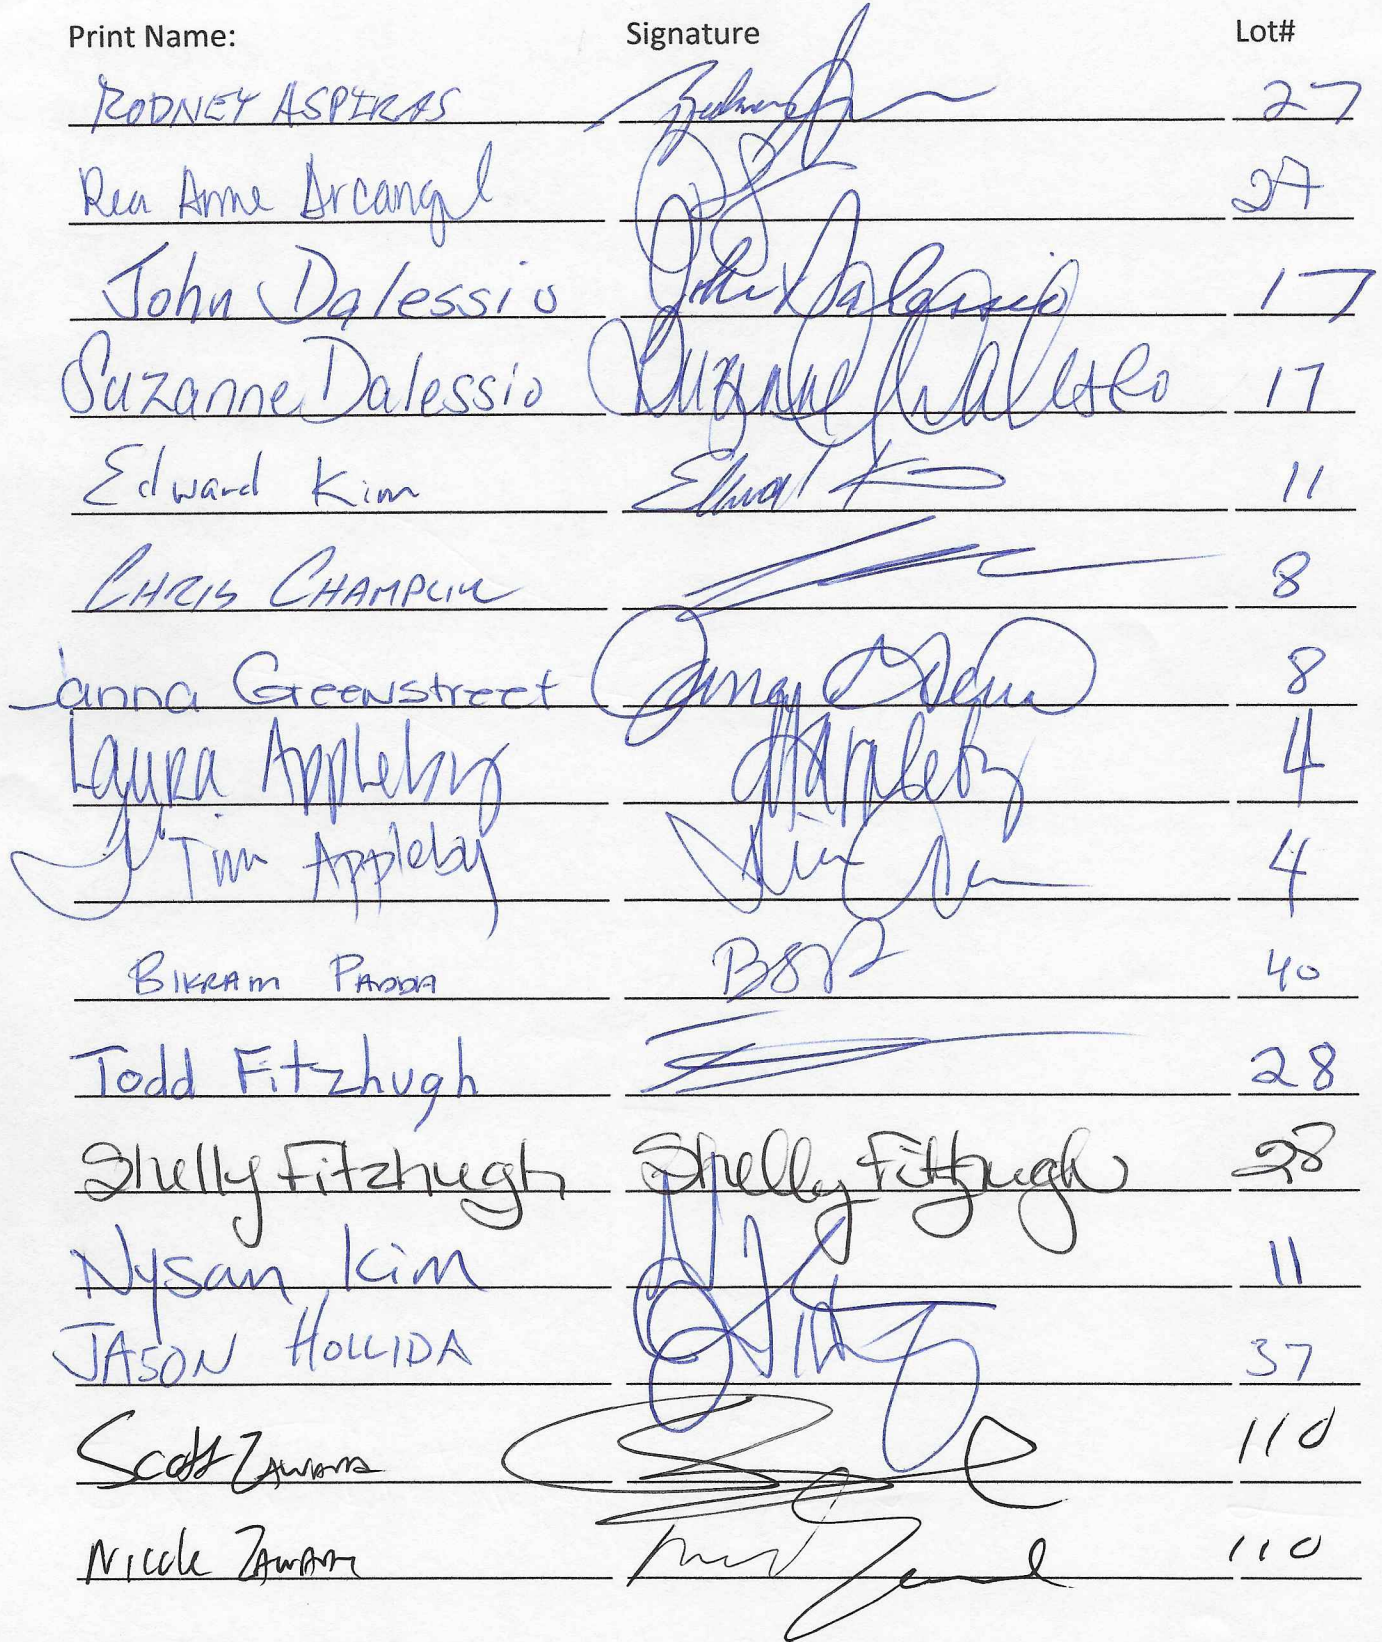 Print Name: Signature Lot#
RODNEY ASPIRAS 27
Rea Anne Arcangel 27
John Dalessio John Dalessio 17
Suzanne Dalessio Suzanne Dalessio 17
Edward Kim Edward K 11
CHRIS CHAMPLIN 8
Janna Greenstreet 8
Laura Appleby Appleby 4
Tim Appleby Tim 4
BIKRAM PADDA BSP 40
Todd Fitzhugh 28
Shelly Fitzhugh Shelly Fitzhugh 28
Nysan Kim 11
JASON HOLLIDA 37
Scott 110
Nicole 110